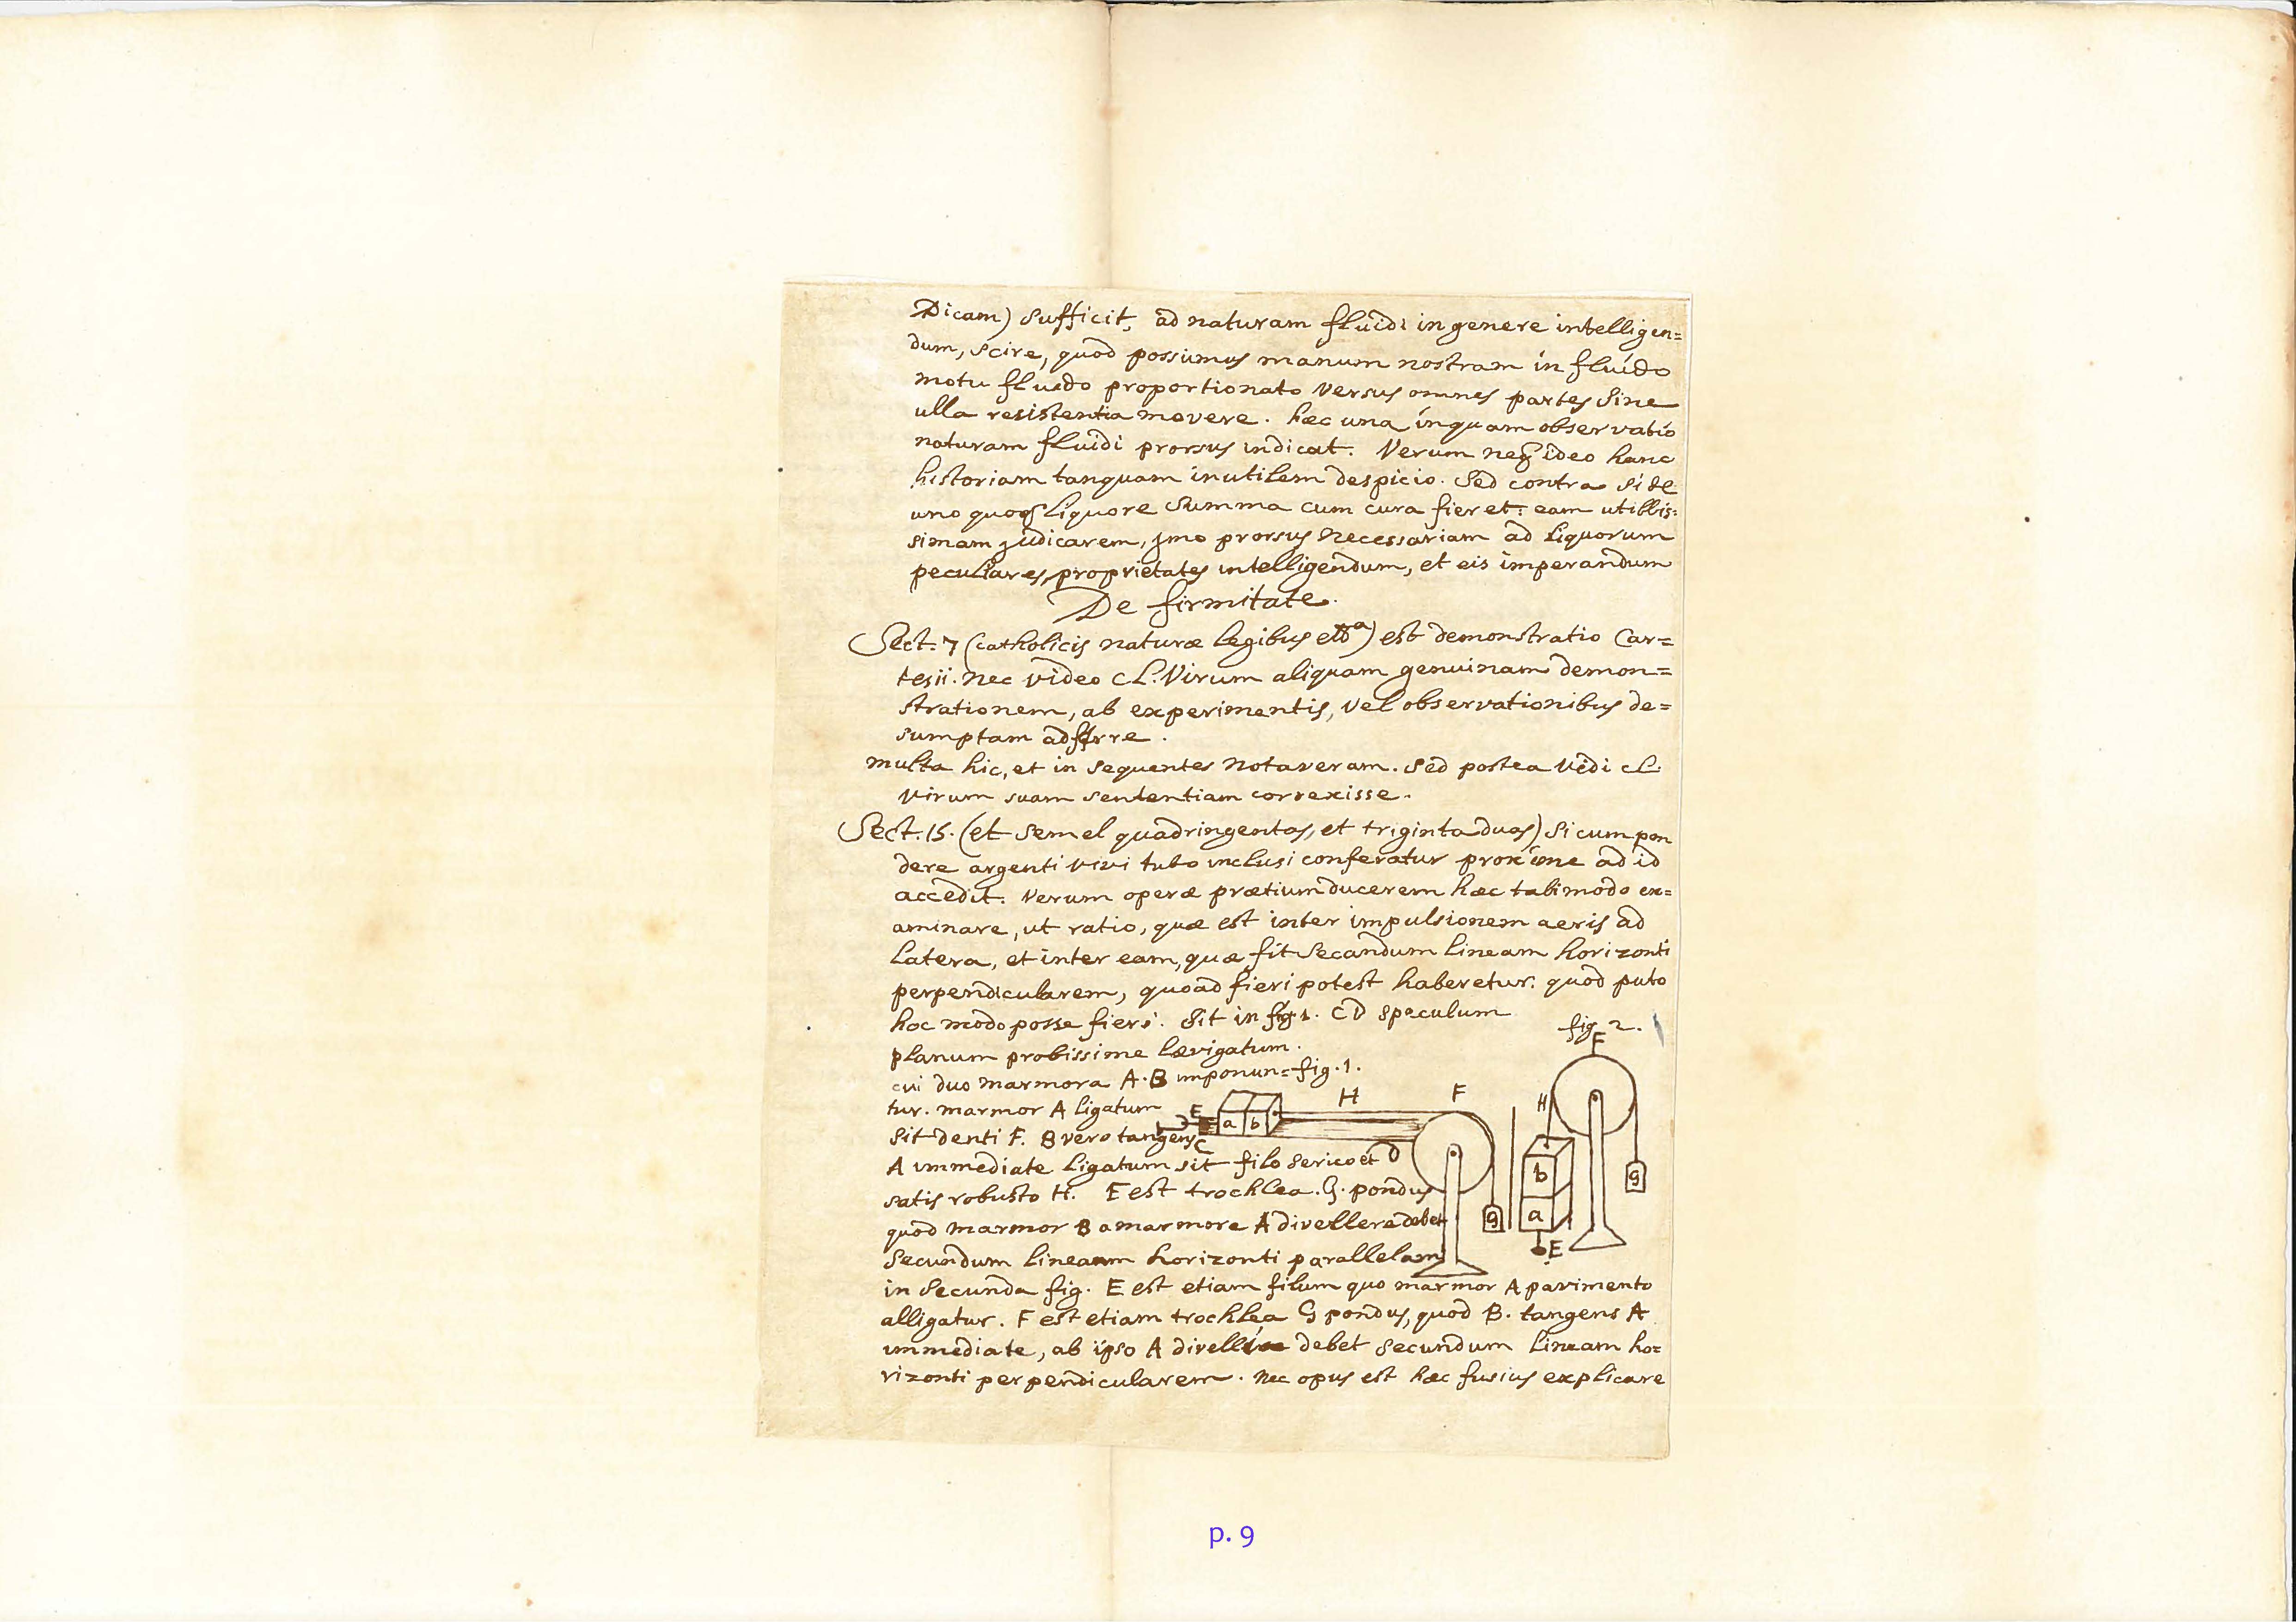 Dicam) sufficit, ad naturam fluidi in genere intelligen=
dum, scire, quod possumus manum nostram in fluido
motu fluido proportionato versus omnes partes sine
ulla resistentia movere. hæc una inquam observatio
naturam fluidi prorsus indicat. Verum neq ideo hanc
historiam tanquam inutilem despicio. Sed contra si de
uno quoq liquore summa cum cura fieret: eam utilis=
simam judicarem, jmo prorsus necessariam ad liquorum
peculiares proprietates intelligendum, et eis imperandum
De firmitate.
Sect. 7 (catholicis naturæ legibus etca) est demonstratio Car=
tesii. nec video cl. Virum aliquam genuinam demon=
strationem, ab experimentis, vel observationibus de=
sumptam adferre.
multa hic, et in sequentes notaveram. sed postea vidi cl.
virum suam sententiam correxisse.
Sect. 15. (et semel quadringentas, et triginta duas) si cum pon
dere argenti vivi tubo inclusi conferatur proxime ad id
accedit. Verum operæ prætium ducerem hæc tali modo ex=
aminare, ut ratio, quæ est inter impulsionem aeris ad
latera, et inter eam, quæ fit secundum lineam horizonti
perpendicularem, quoad fieri potest haberetur. quod puto
hoc modo posse fieri. Sit in fig 1. CD speculum
planum probissime lævigatum.
cui duo marmora A. B imponun=
tur. marmor A ligatum
sit denti F. B vero tangens
A immediate ligatum sit filo serico et
satis robusto H. E est trochlea. G. pondus
quod marmor B a marmore A divellere debet
secundum lineam horizonti parallelam
in secunda fig. E est etiam filum quo marmor A pavimento
alligatur. F est etiam trochlea G pondus, quod B. tangens A
immediate, ab ipso A debet secundum lineam ho=
rizonti perpendicularem. nec opus est hæc fusius explicare
fig. 1.
E
a b
C
H
F
D
g
fig 2.
F
H
b
a
g
E
p. 9